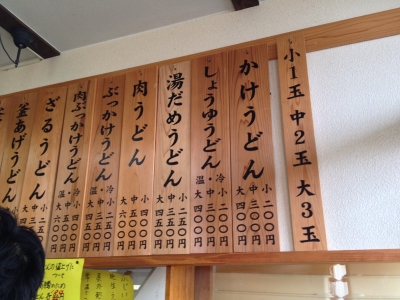 小1玉 中2玉 大3玉
かけうどん
小 二〇〇円
中 三〇〇円
大 四〇〇円
しょうゆうどん 冷・温
小 二〇〇円
中 三〇〇円
大 四〇〇円
湯だめうどん
小 二五〇円
中 三五〇円
大 四五〇円
肉うどん
小 四〇〇円
中 五〇〇円
大 六〇〇円
ぶっかけうどん 冷・温
小 二五〇円
中 三五〇円
大 四五〇円
肉ぶっかけうどん 冷・温
小 四〇〇円
中 五〇〇円
大 六〇〇円
ざるうどん
小 二五〇円
中 三五〇円
大 四五〇円
釜あげうどん